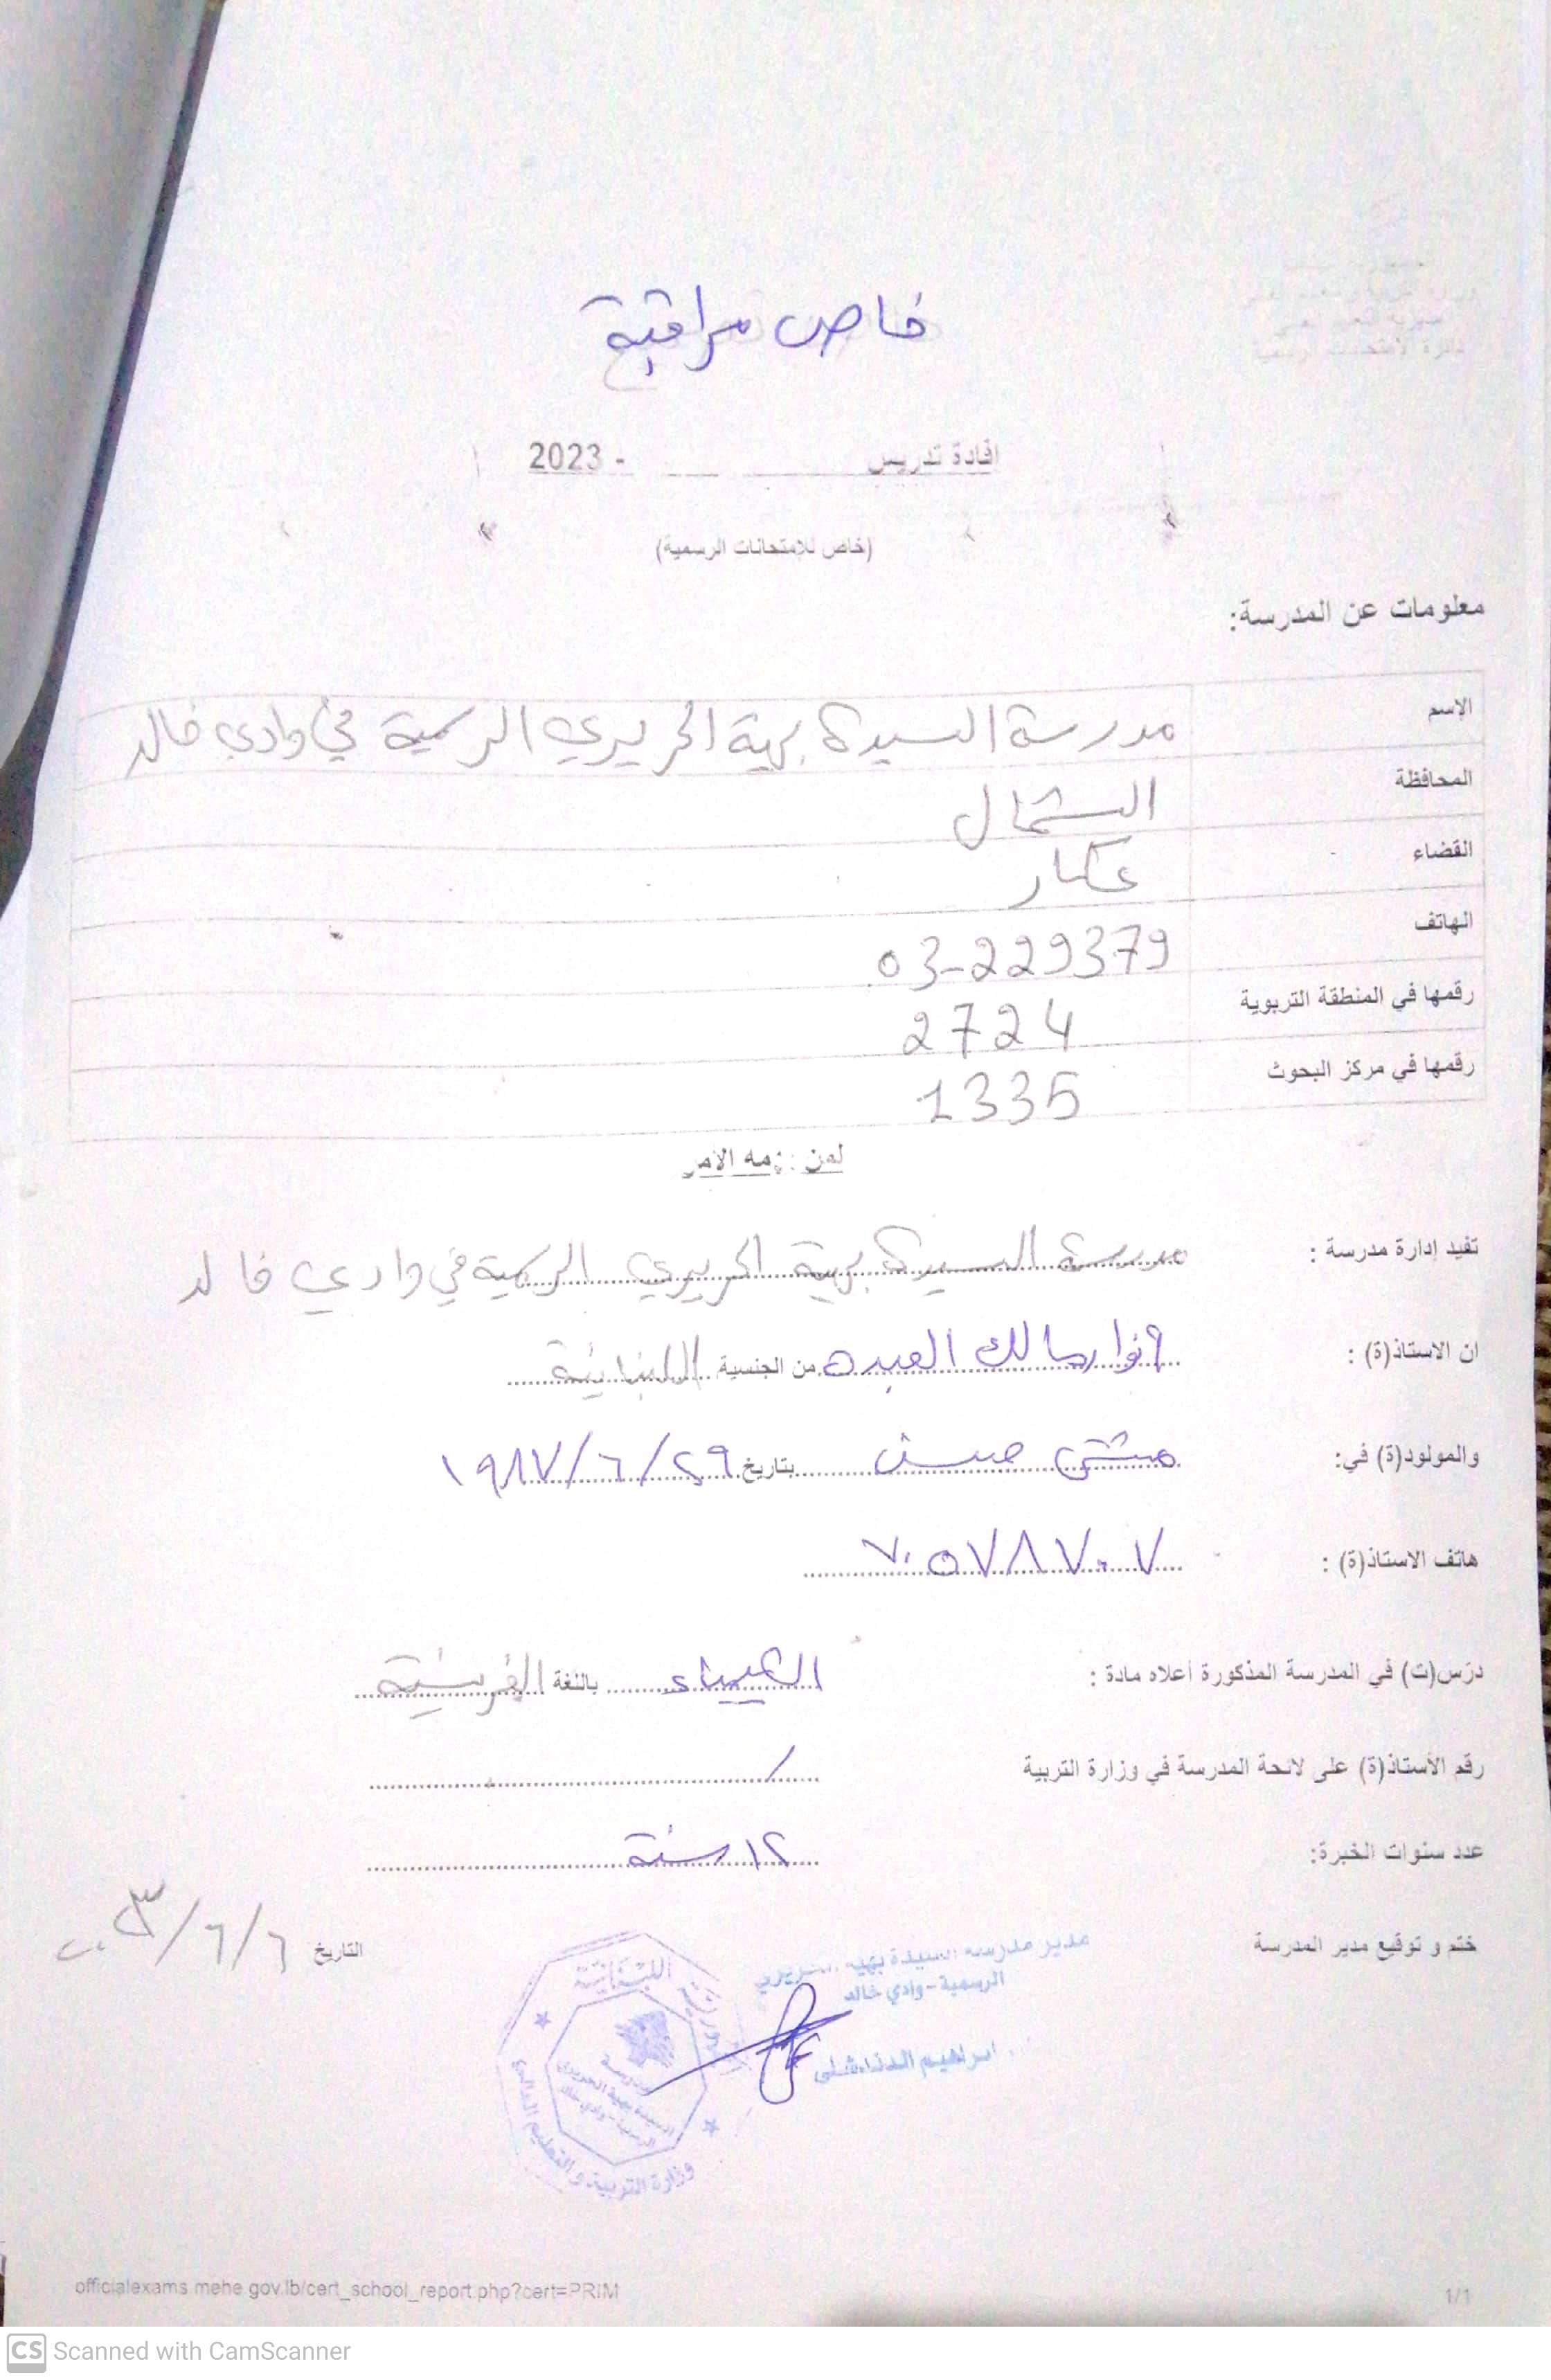 خاص مراقبة
افادة تدريس - 2023
(خاص للإمتحانات الرسمية)
معلومات عن المدرسة:
الإسم مدرسة السيدة بهية الحريري الرسمية في وادي خالد
المحافظة الشمال
القضاء عكار
الهاتف 03-229379
رقمها في المنطقة التربوية 2724
رقمها في مركز البحوث 1335
لمن الأمر
تفيد إدارة مدرسة : مدرسة السيدة بهية الحريري الرسمية في وادي خالد
ان الاستاذ(ة) : العبده من الجنسية اللبنانية
والمولود(ة) في: مشتى حسن بتاريخ ٢٩/٦/١٩٨٧
هاتف الاستاذ(ة) : ٧٠٥٧٨٧٠٧
درّس(ت) في المدرسة المذكورة أعلاه مادة : الكيمياء باللغة الفرنسية
رقم الأستاذ(ة) على لائحة المدرسة في وزارة التربية /
عدد سنوات الخبرة: ١٢ سنة
ختم و توقيع مدير المدرسة التاريخ ٦/٦/٢٠٢٣
مدير مدرسة السيدة بهية الحريري
الرسمية - وادي خالد
ابراهيم الدندشلي
اللبنانية
مدرسة
السيدة بهية الحريري
الرسمية - وادي خالد
وزارة التربية والتعليم العالي
officialexams.mehe.gov.lb/cert_school_report.php?cert=PRIM 1/1
CS Scanned with CamScanner